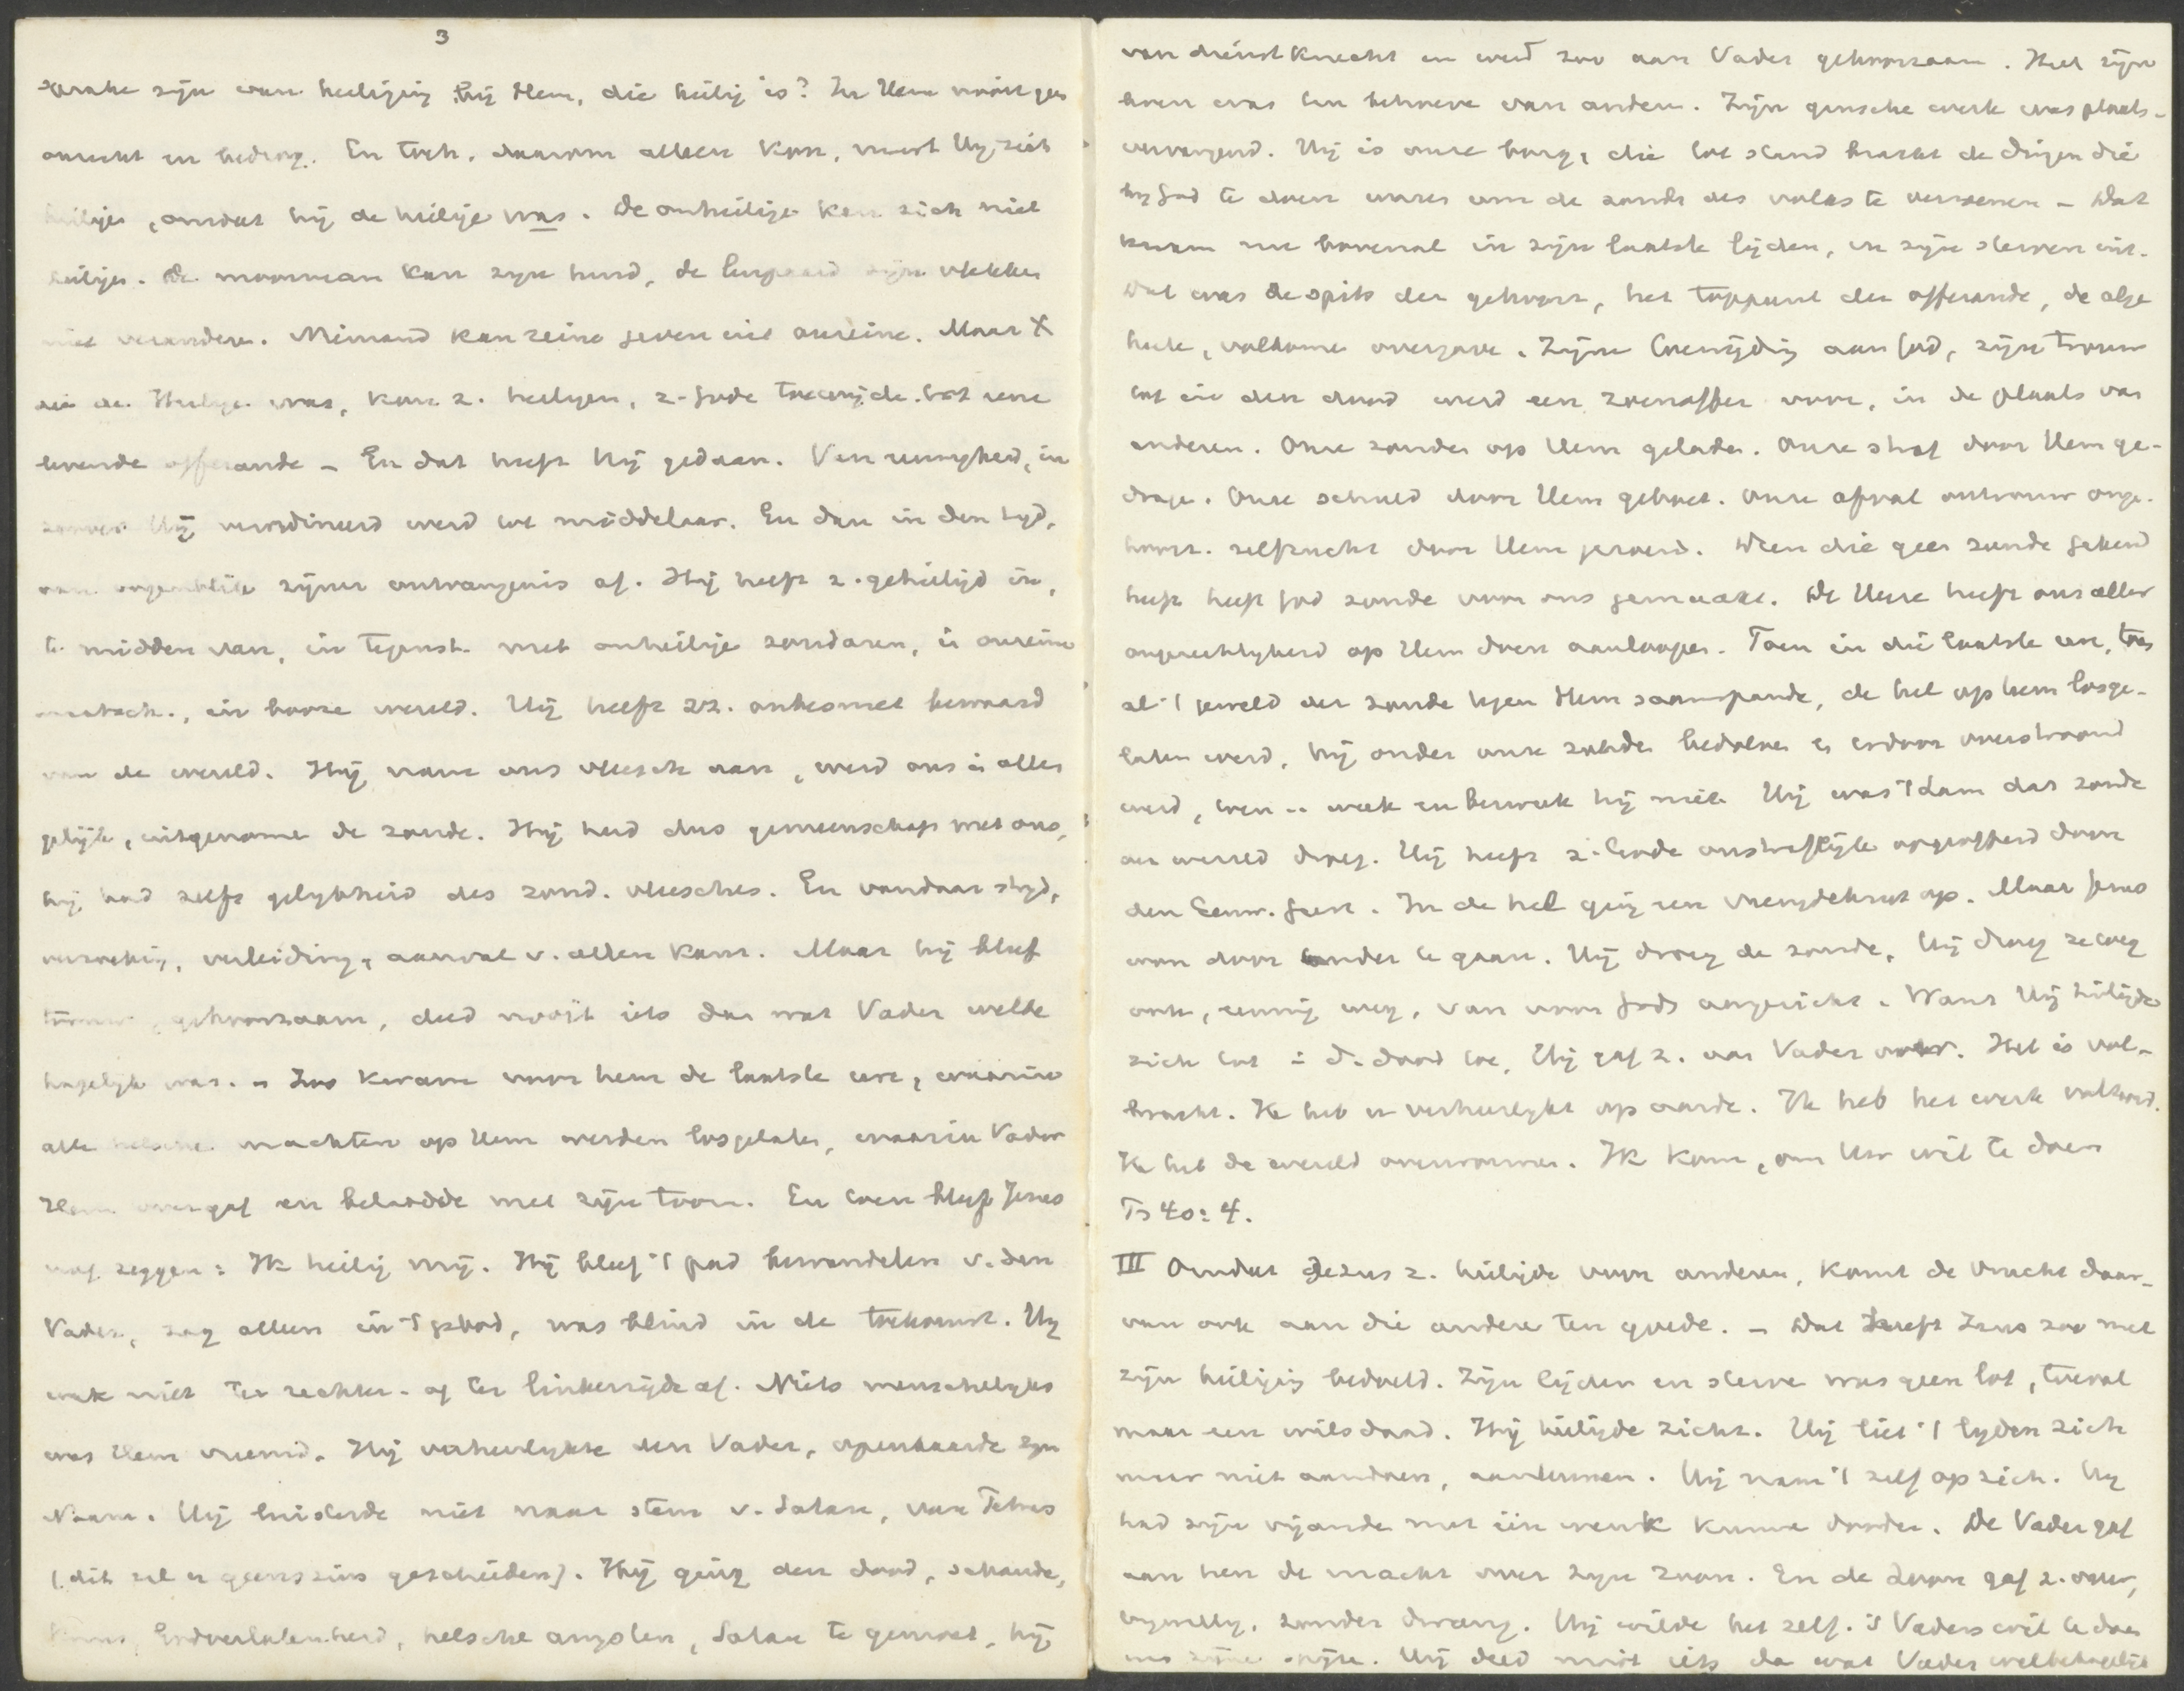 3
sprake zijn van heiliging bij Hem, die heilig is? In Hem nooit geen
onrecht en bedrog. En toch, daarom alleen kon, moest Hij zich
heiligen, omdat hij de heilige was. De onheilige kan zich niet
heiligen. De moorman kan zijn huid, de luipaard zijn vlekken
niet veranderen. Niemand kan reine geven uit onreine. Maar X
die de Heilige was, kon z. heiligen, z. Gode toewijden tot eene
levende offerande – En dat heeft Hij gedaan. Van eeuwigheid, in
zoover Hij verordineerd werd tot middelaar. En dan in den tijd,
van oogenblik zijner ontvangenis af. Hij heeft z. geheiligd in,
te midden van, in tegenst. met onheilige zondaren, in onreine
maatsch., in booze wereld. Hij heeft zz. onbesmet bewaard
van de wereld. Hij nam ons vleesch aan, werd ons in alles
gelijk, uitgenomen de zonde. Hij had dus gemeenschap met ons,
hij had zelfs gelijkheid des zond. vleesches. En vandaar strijd,
verzoeking, verleiding, aanval v. allen kant. Maar hij bleef
trouw, gehoorzaam, deed nooit iets dan wat Vader welbe
hagelijk was. – Zoo kwam voor hem de laatste ure, waarin
alle helsche machten op Hem werden losgelaten, waarin Vader
Hem overgaf en belaadde met zijn toorn. En toen bleef Jezus
nog zeggen: Ik heilig mij. Hij bleef 't pad bewandelen v. den
Vader, zag alleen in 't gebod, was blind in de toekomst. Hij
week niet ter rechter- of ter linkerzijde af. Niets menschelijks
was Hem vreemd. Hij verheerlijkte den Vader, openbaarde zijn
Naam. Hij luisterde niet naar stem v. Satan, van Petrus
(dit zal u geenszins geschieden). Hij ging den dood, schande,
kruis, Godverlatenheid, helsche angsten, Satan te gemoet, hij
van dienstknecht en werd zoo aan Vader gehoorzaam. Heel zijn
leven was ten behoeve van anderen. Zijn gansche werk was plaats-
vervangend. Hij is onze borg, die tot stand bracht de dingen die
bij God te doen waren om de zonde des volks te verzoenen – Dat
kwam nu bovenal in zijn laatste lijden, in zijn sterven uit.
Dat was de spits der gehoorz., het toppunt der offerande, de alge
heele, volkome overgave. Zijne toewijding aan God, zijn trouw
tot in den dood werd een zoenoffer voor, in de plaats van
anderen. Onze zonden op Hem geladen. Onze straf door Hem ge-
dragen. Onze schuld door Hem geboet. Onze afval ontrouw onge-
hoorz. zelfzucht door Hem gezoend. Dien die geen zonde gekend
heeft heeft God zonde voor ons gemaakt. De Heere heeft ons aller
ongerechtigheid op Hem doen aanloopen. Toen in die laatste ure, toen
al 't geweld der zonde tegen Hem saamspande, de hel op hem losge-
laten werd, hij onder onze zonden bedolven en erdoor overstroomd
werd, toen .. week en bezweek hij niet. Hij was 't Lam dat zonde
der wereld droeg. Hij heeft z. Gode onstraffelijk opgeofferd door
den Eeuw. Geest. In de hel ging een vreugdekreet op. Maar Jezus
won door onder te gaan. Hij droeg de zonde, Hij droeg ze weg
ook, eeuwig weg, van voor Gods aangezicht. Want Hij heiligde
zich tot in d. dood toe, Hij gaf z. aan Vader over. Het is vol-
bracht. Ik heb u verheerlijkt op aarde. Ik heb het werk voltooid.
Ik heb de wereld overwonnen. Ik kom, om Uw wil te doen
Ps 40: 4.
III Omdat Jezus z. heiligde voor anderen, komt de vrucht daar-
van ook aan die andere ten goede. – Dat heeft Jezus zoo met
zijn heiliging bedoeld. Zijn lijden en sterven was geen lot, toeval
maar een wilsdaad. Hij heiligde zichz. Hij liet 't lijden zich
maar niet aandoen, aanleunen. Hij nam 't zelf op zich. Hij
had zijn vijanden met één wenk kunnen dooden. De Vader gaf
aan hen de macht over zijn Zoon. En de Zoon gaf z. over,
vrijwillig, zonder dwang. Hij wilde het zelf. 's Vaders wil te doen
was zijne spijze. Hij deed nooit iets dan wat Vader welbehagelijk